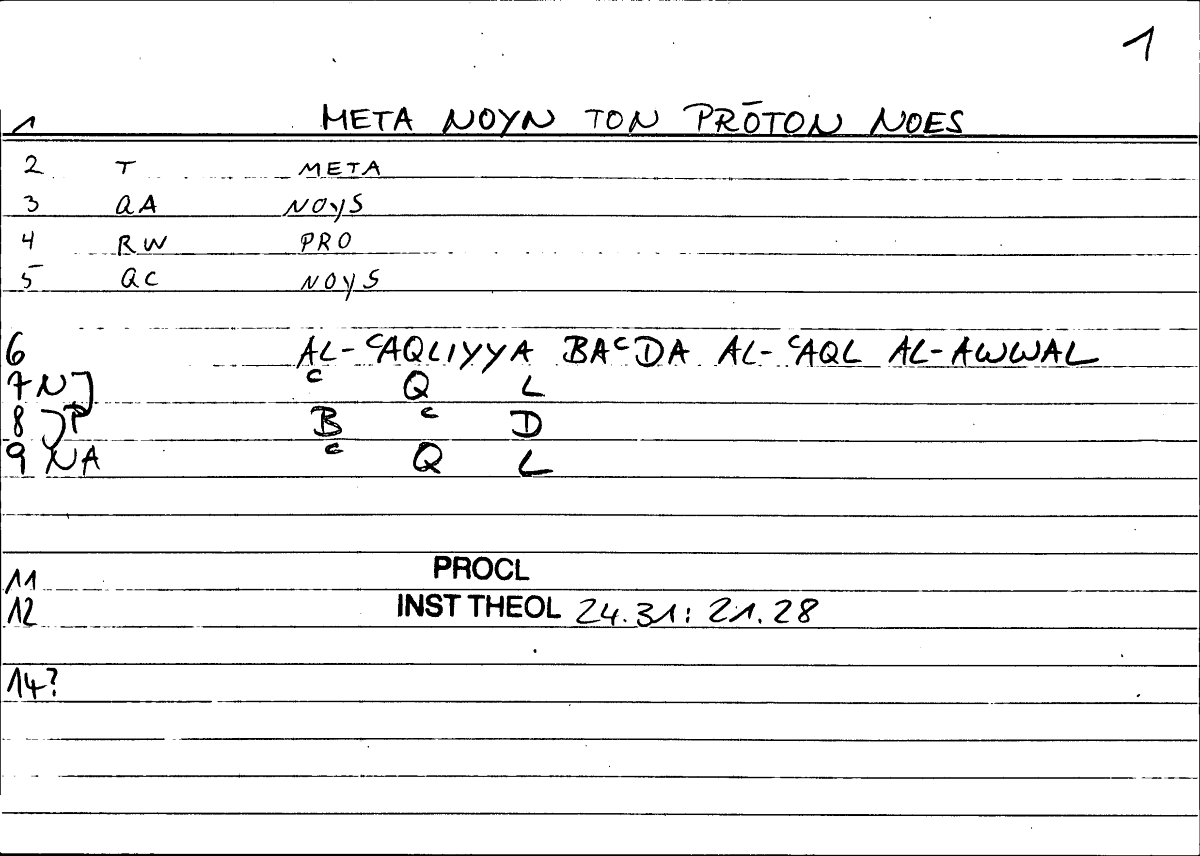 1
1 META NOYN TON PRŌTON NOES
2 T META
3 QA NOYS
4 RW PRO
5 QC NOYS
6 AL-ᶜAQLIYYA BAᶜDA AL-ᶜAQL AL-AWWAL
7 N] ᶜ Q L
8 JP B ᶜ D
9 NA ᶜ Q L
11 PROCL
12 INST THEOL 24.31: 21.28
14?